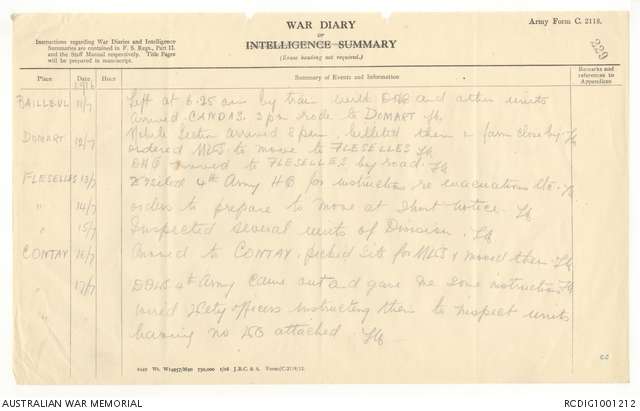 WAR DIARY
or
INTELLIGENCE SUMMARY
(Erase heading not required.)
Army Form C. 2118.
Instructions regarding War Diaries and Intelligence
Summaries are contained in F. S. Regs., Part II.
and the Staff Manual respectively. Title Pages
will be prepared in manuscript.
229
Place Date Hour Summary of Events and Information Remarks and references to Appendices
1916
BAILLEUL 11/7 Left at 6.25 am by train with DHQ and other units
arrived CANDAS 3 pm rode to DOMART
DOMART 12/7 Mobile Section arrived 2 pm, billeted them in farm close by
ordered MVS to move to FLESELLES
DHQ moved to FLESELLES by road.
FLESELLES 13/7 Visited 4th Army HQ for instructions re evacuations etc.
" 14/7 orders to prepare to move at short notice.
" 15/7 Inspected several units of Division.
CONTAY 16/7 moved to CONTAY, picked site for MVS & moved them
" 17/7 DDVS 4th Army came out and gave me some instructions
wired Vety officers instructing them to inspect units
having no VO attached.
AUSTRALIAN WAR MEMORIAL
RCDIG1001212